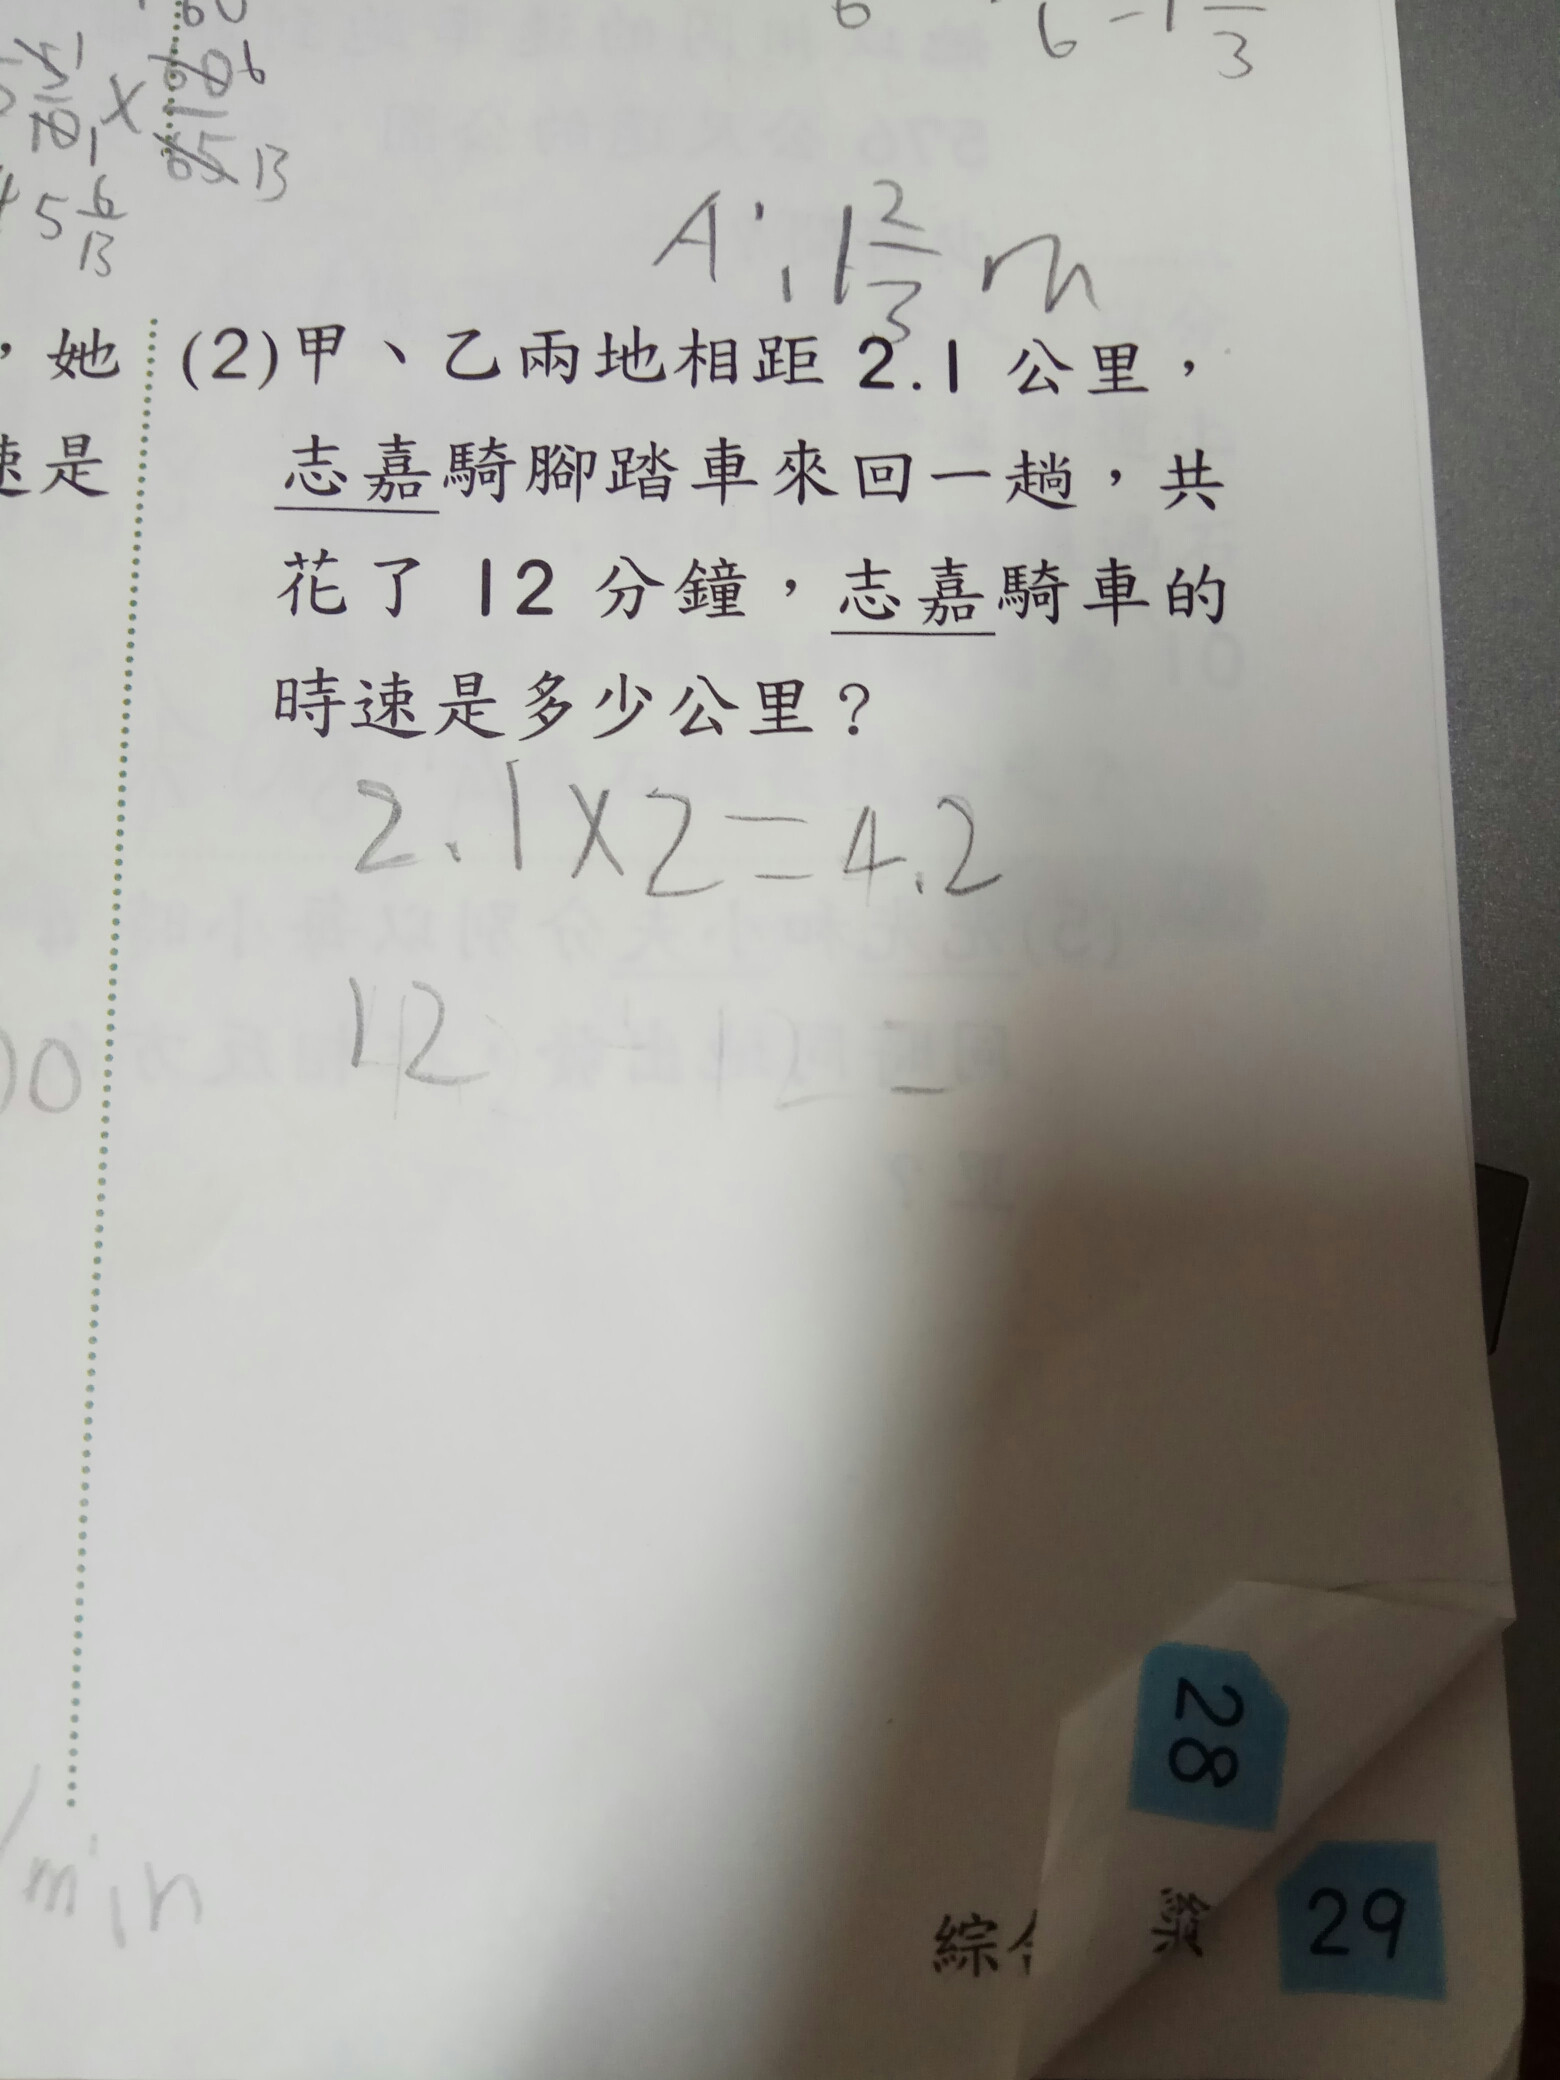 60
6
6 - 1 1/3
51/10 1 × 606/65 13
5 6/13
A: 1 2/3 m
，她
速是
(2)甲、乙兩地相距 2.1 公里，
志嘉騎腳踏車來回一趟，共
花了 12 分鐘，志嘉騎車的
時速是多少公里？
2.1×2=4.2
12
00
/min
28
綜
29